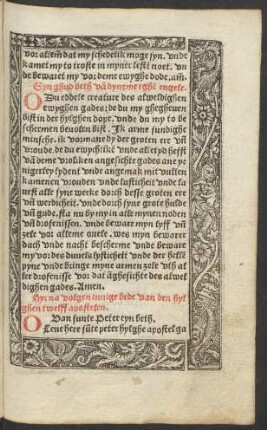 vor allem dat my schedelik moge syn. vnde
kamet my to troste in myner leste noet. vn
de bewaret my vor deme ewyghe dode. am̄.
Eyn ghud beth vā dyneme eghē engele.
O Du eddele creature des alweldighen
ewyghen gades: de du my ghegheuen
bist in der hylghen dope. vnde du my to be
schermen beuolen bist. Ik arme sundighe
minsche. ik vormane dy der groten ere vn̄
vroude. de du ewychlike vnde all tyd hefft
vā deme vroliken angesichte gades ane ye
nigerley lydent vnde angemak mit vullen
kamenen vrouden vnde lusticheit vnde la
uest alle syne werke dorch desse groten ere
vn̄ werdicheit. vnde dorch syne grote hulde
vn̄ gude. sta nu by my in alle mynen noden
vn̄ drofenissen. vnde beware myn lyff vn̄
sele vor alleme ouele. wes myn bewarer
dach vnde nacht bescherme vnde beware
my vor des duuels lysticheit vnde der helle
pyne vnde bringe myne armen zele vth al
ler drofenisse vor dat āghesichte des alwel
dighen gades. Amen.
Hyr na volgen innige bede van den hyl
ghen twelff apostelen.
O Van sunte Peter eyn beth.
Leue here sūte peter hylghe apostel ga